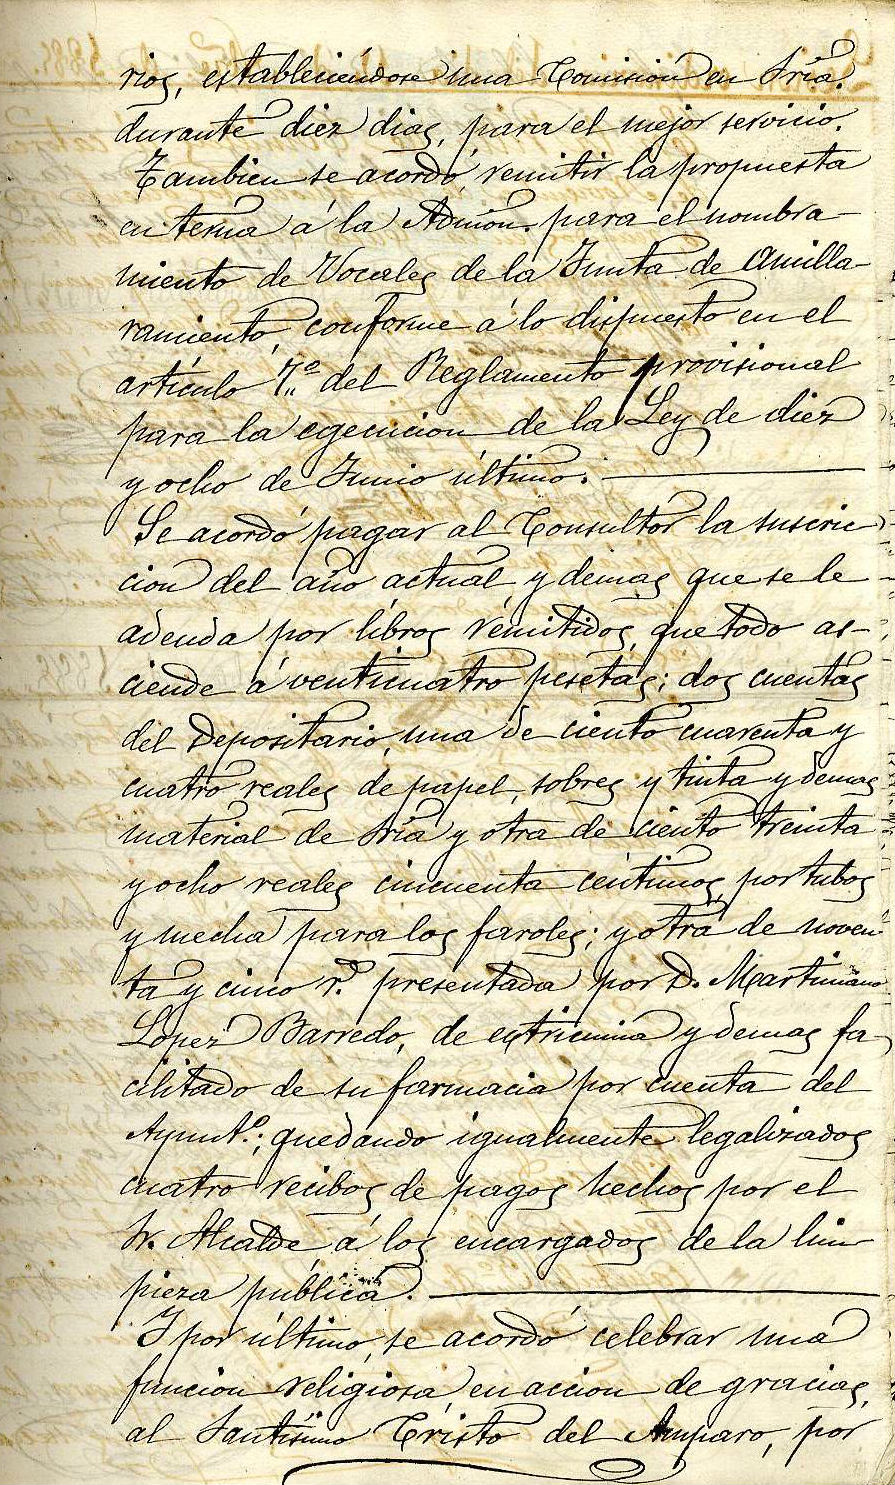 rios, estableciéndose una Comision en Sría.
durante diez dias, para el mejor servicio.
Tambien se acordó, remitir la propuesta
en terna á la Admón. para el nombra-
miento de Vocales de la Junta de Amilla-
ramiento, conforme á lo dispuesto en el
artículo 7.º del Reglamento provisional
para la egecucion de la Ley de diez
y ocho de Junio último.
Se acordó pagar al Consultor la suscric-
cion del año actual, y demas que se le
adeuda por libros remitidos, que todo as-
ciende á venticuatro pesetas; dos cuentas
del Depositario, una de ciento cuarenta y
cuatro reales de papel, sobres y tinta y demas
material de Sría y otra de ciento treinta
y ocho reales cincuenta céntimos, por tubos
y mecha para los faroles; y otra de noven-
ta y cinco r.s presentada por D. Martiniano
López Barredo, de estricnina y demas fa-
cilitado de su farmacia por cuenta del
Ayunt.º; quedando igualmente legalizados
cuatro recibos de pagos hechos por el
Sr. Alcalde á los encargados de la lim-
pieza pública.
Y por último, se acordó celebrar una
funcion religiosa, en accion de gracias,
al Santísimo Cristo del Amparo, por